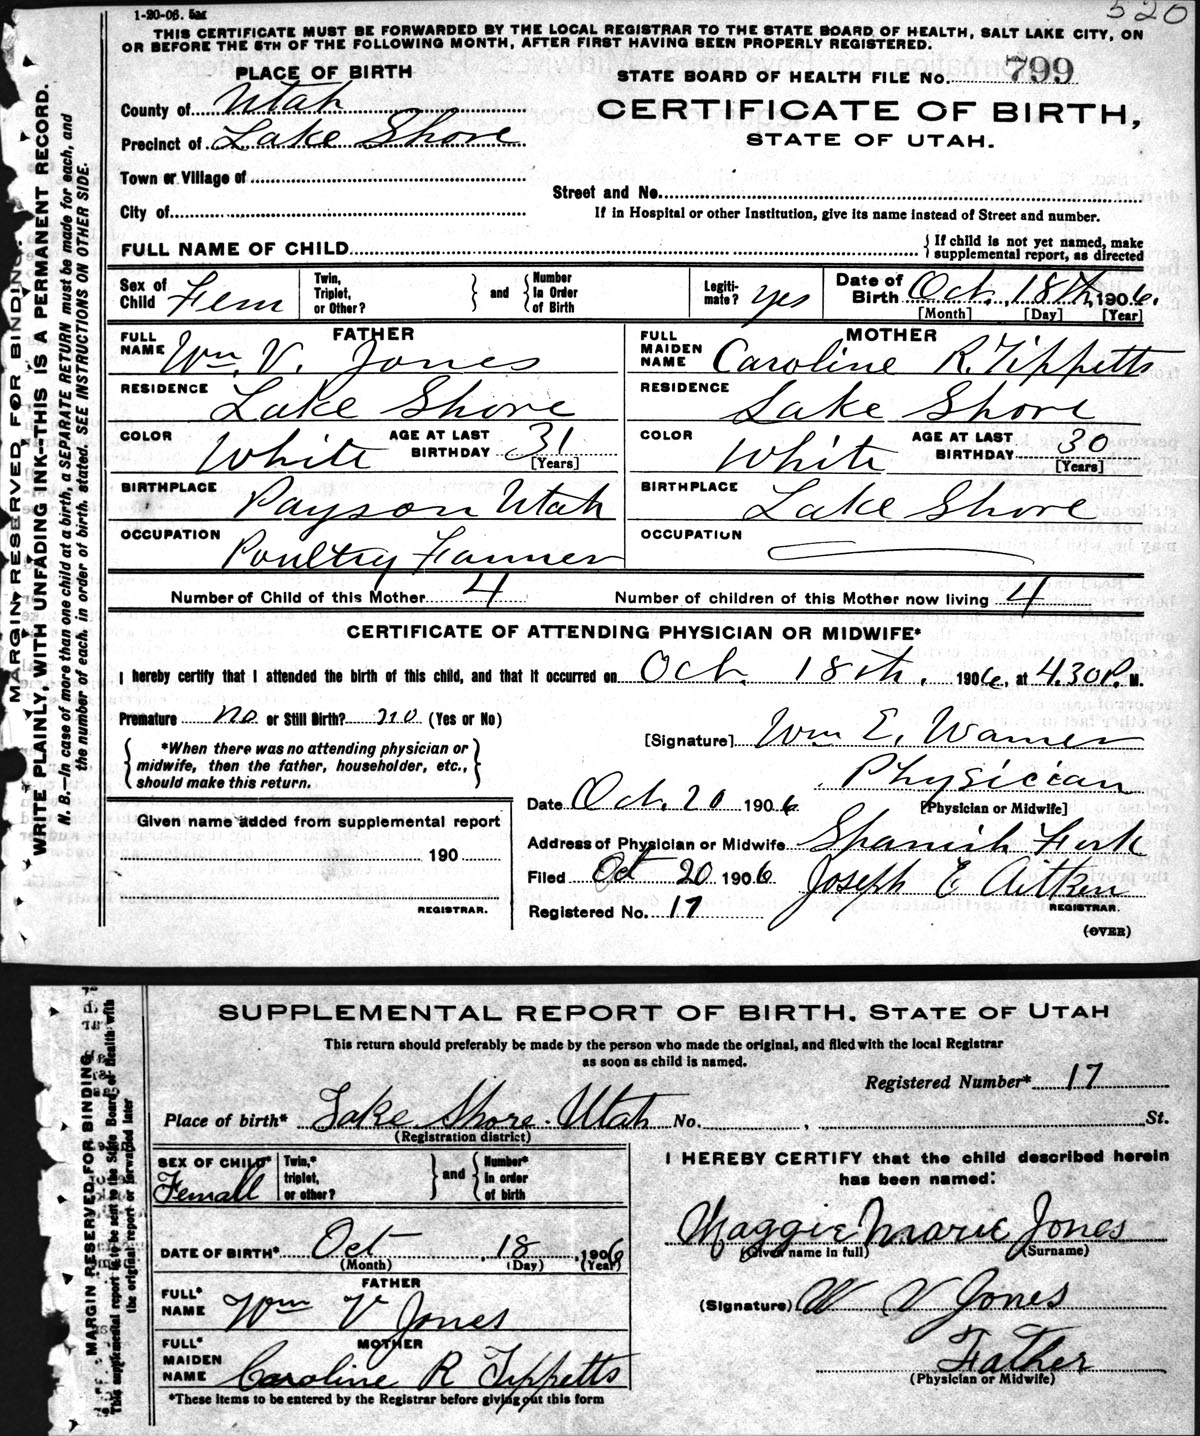 1-20-06. 5m
520
THIS CERTIFICATE MUST BE FORWARDED BY THE LOCAL REGISTRAR TO THE STATE BOARD OF HEALTH, SALT LAKE CITY, ON
OR BEFORE THE 5TH OF THE FOLLOWING MONTH, AFTER FIRST HAVING BEEN PROPERLY REGISTERED.
MARGIN RESERVED FOR BINDING.
WRITE PLAINLY, WITH UNFADING INK—THIS IS A PERMANENT RECORD.
N. B.—In case of more than one child at a birth, a SEPARATE RETURN must be made for each, and
the number of each, in order of birth, stated. SEE INSTRUCTIONS ON OTHER SIDE.
PLACE OF BIRTH
STATE BOARD OF HEALTH FILE No. 799
County of Utah
CERTIFICATE OF BIRTH,
Precinct of Lake Shore
STATE OF UTAH.
Town or Village of
Street and No.
City of
If in Hospital or other Institution, give its name instead of Street and number.
FULL NAME OF CHILD
{ If child is not yet named, make
supplemental report, as directed
Sex of Child Fem
Twin, Triplet, or Other?
} and {
Number In Order of Birth
Legiti-mate? yes
Date of Birth Oct. 18th, 1906.
[Month] [Day] [Year]
FATHER
FULL NAME Wm. V. Jones
MOTHER
FULL MAIDEN NAME Caroline R. Tippetts
RESIDENCE Lake Shore
RESIDENCE Lake Shore
COLOR White AGE AT LAST BIRTHDAY 31 [Years]
COLOR White AGE AT LAST BIRTHDAY 30 [Years]
BIRTHPLACE Payson Utah
BIRTHPLACE Lake Shore
OCCUPATION Poultry Farmer
OCCUPATION
Number of Child of this Mother 4
Number of children of this Mother now living 4
CERTIFICATE OF ATTENDING PHYSICIAN OR MIDWIFE*
I hereby certify that I attended the birth of this child, and that it occurred on Oct. 18th. 1906, at 4.30 P. M.
Premature no or Still Birth? no (Yes or No)
{ *When there was no attending physician or
midwife, then the father, householder, etc.,
should make this return. }
[Signature] Wm E. Warner
Physician
Date Oct. 20 1906 [Physician or Midwife]
Given name added from supplemental report
190
REGISTRAR.
Address of Physician or Midwife Spanish Fork
Filed Oct 20 1906 Joseph E Aitken
Registered No. 17 REGISTRAR.
(OVER)
MARGIN RESERVED FOR BINDING.
This supplemental report is to be sent to the State Board of Health with
the original report or forwarded later
SUPPLEMENTAL REPORT OF BIRTH, STATE OF UTAH
This return should preferably be made by the person who made the original, and filed with the local Registrar
as soon as child is named.
Registered Number* 17
Place of birth* Lake Shore. Utah No. , St.
(Registration district)
SEX OF CHILD* Femall
Twin,* triplet, or other?
} and {
Number* in order of birth
DATE OF BIRTH* Oct, 18, 1906
(Month) (Day) (Year)
FATHER
FULL* NAME Wm V Jones
MOTHER
FULL* MAIDEN NAME Caroline R Tippetts
*These items to be entered by the Registrar before giving out this form
I HEREBY CERTIFY that the child described herein
has been named:
Maggie Marie Jones
(Given name in full) (Surname)
(Signature) W V Jones
Father
(Physician or Midwife)